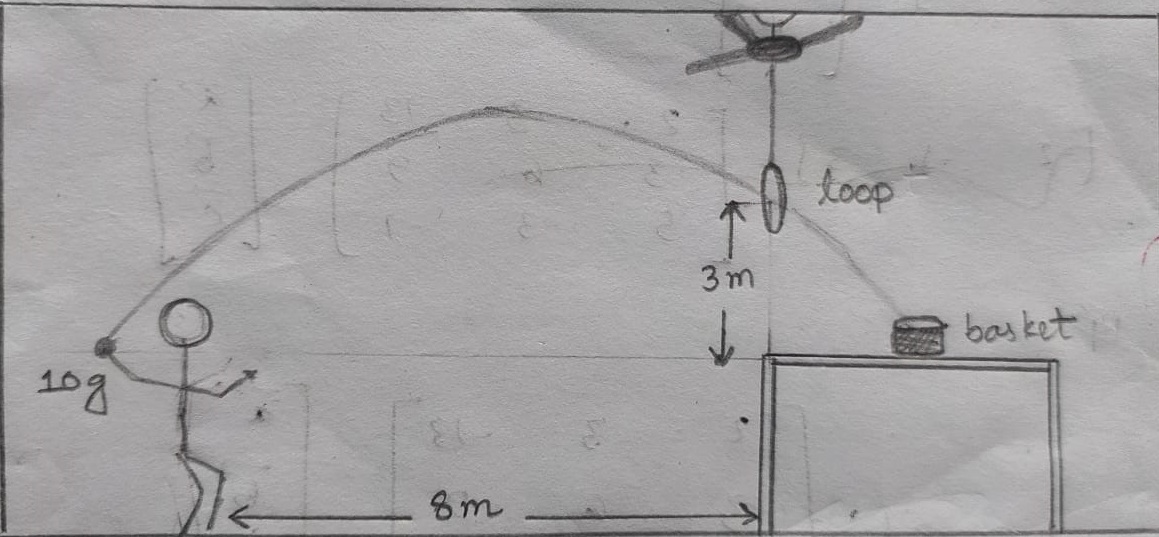 loop
3m
basket
10g
8m